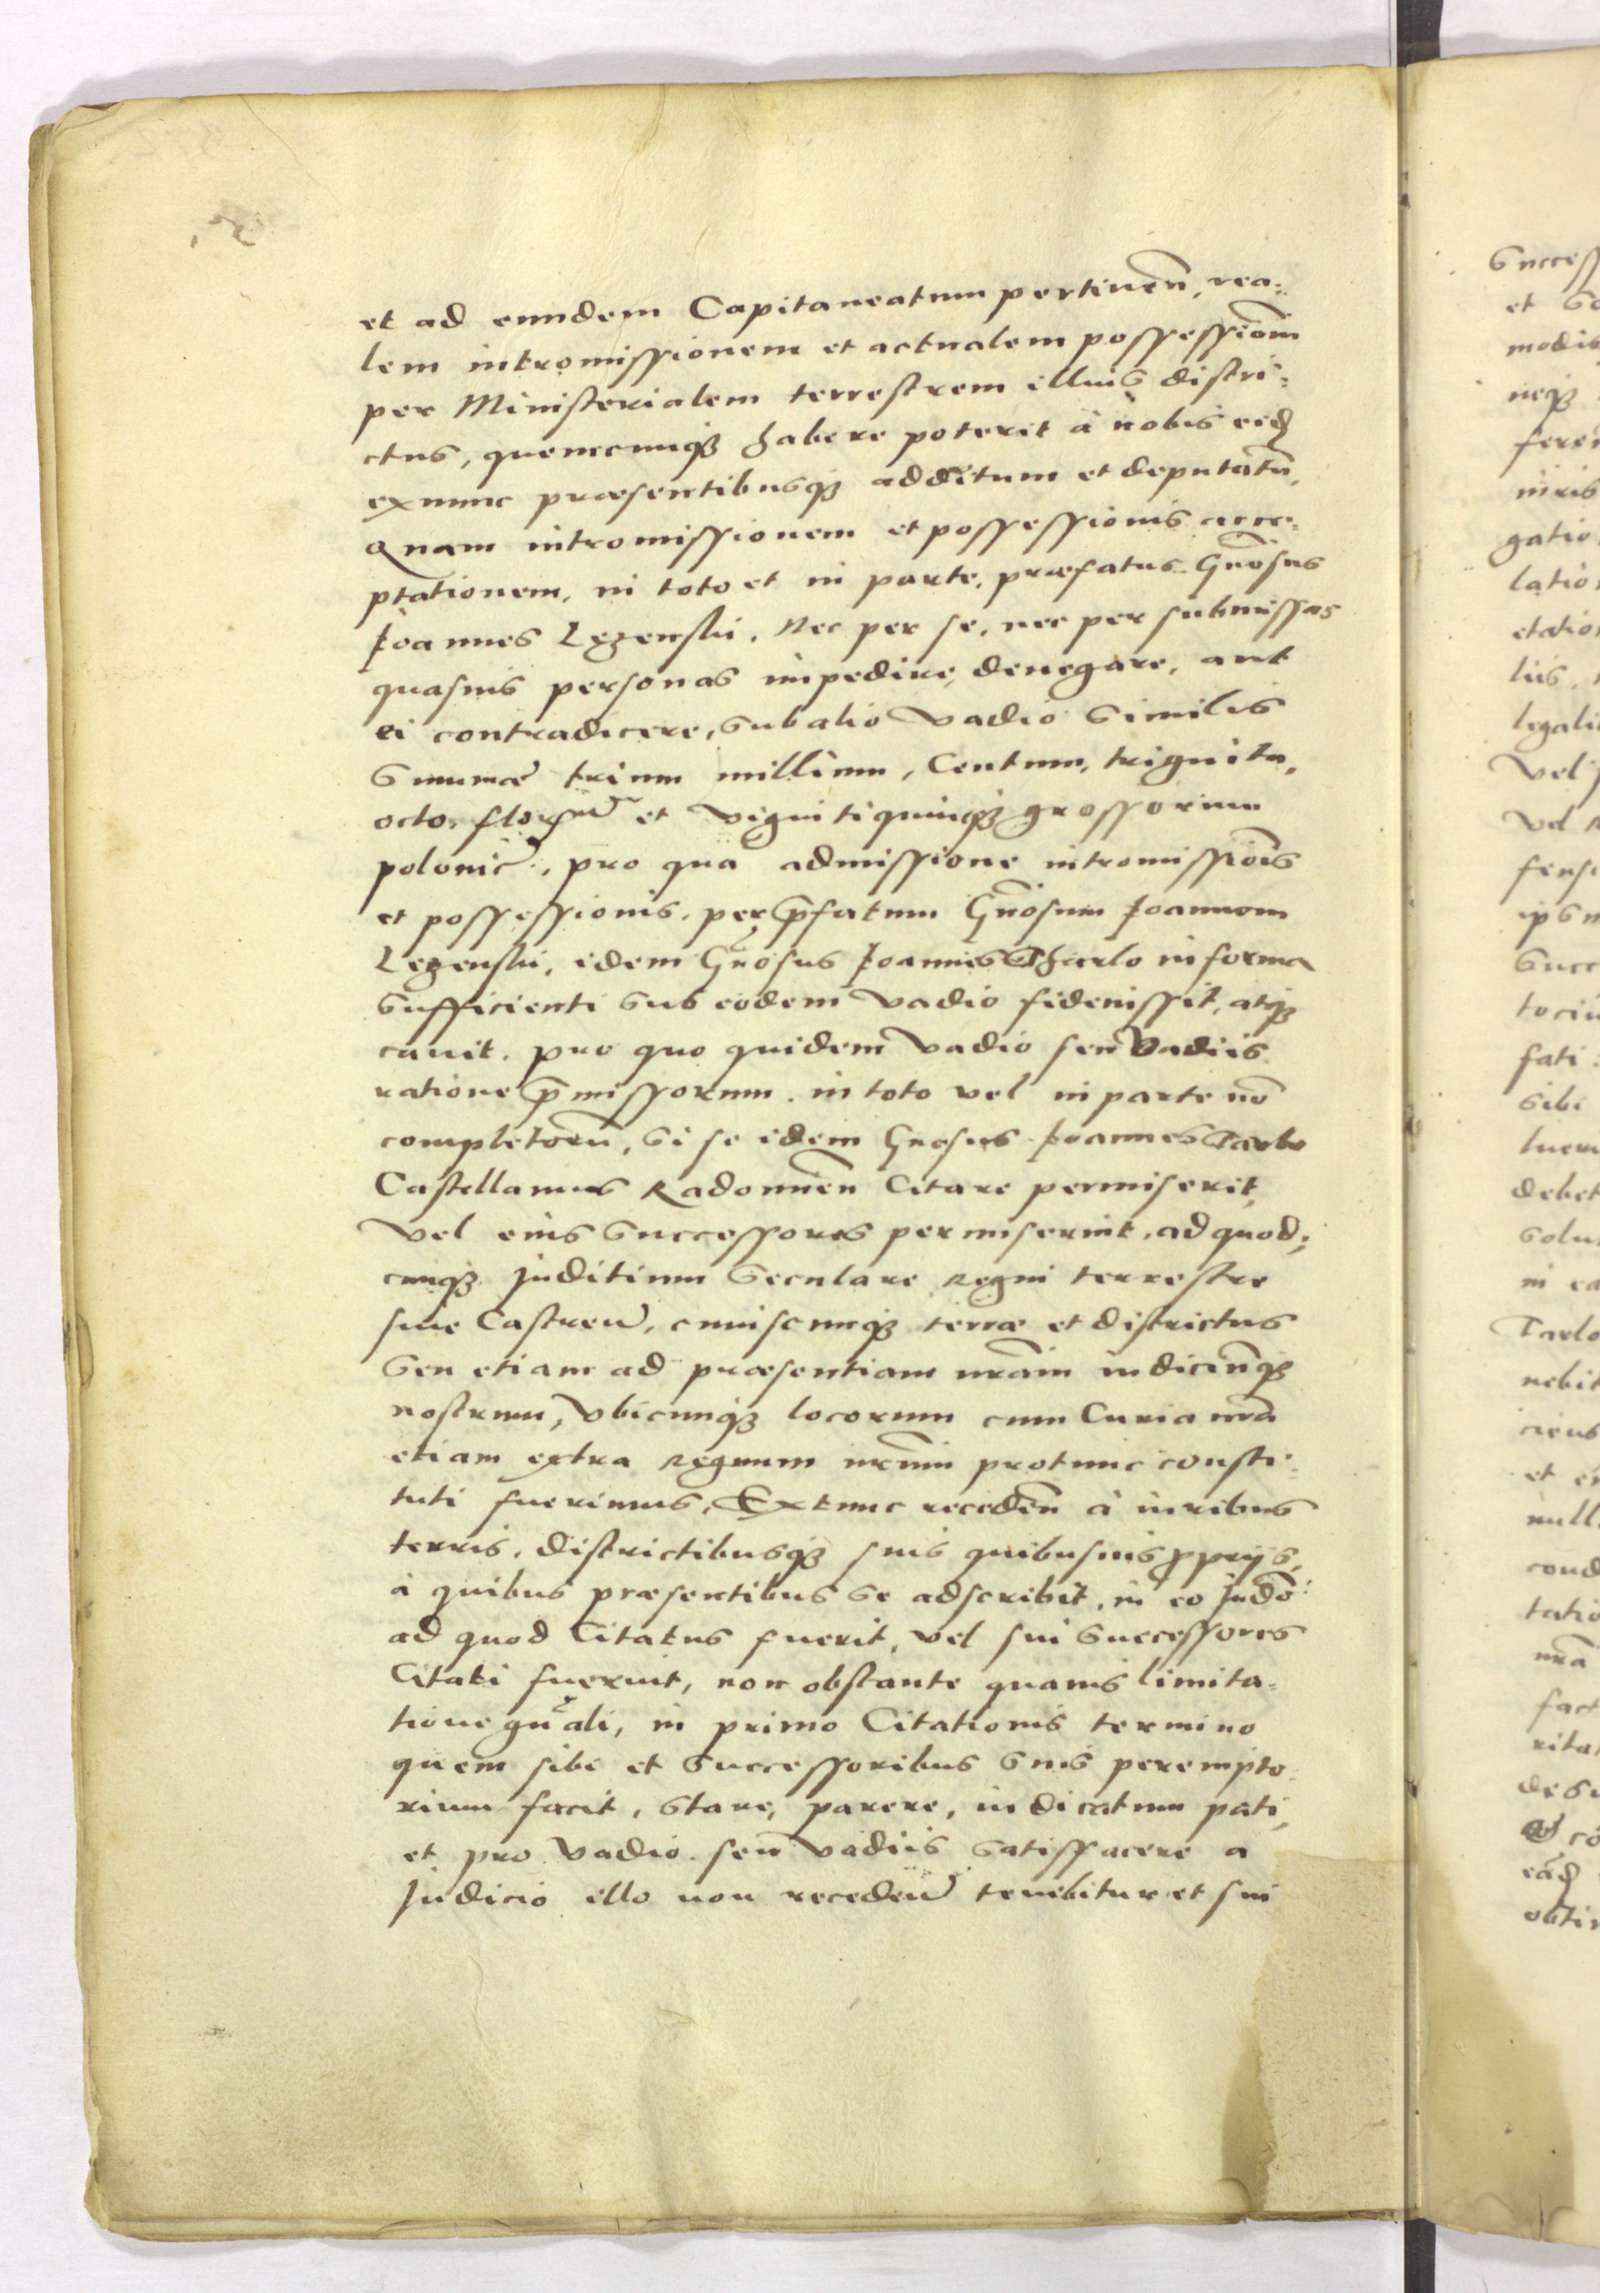 et ad eundem Capitaneatum pertinen̄, rea:
lem intromissionem et actualem possessionē
per Ministerialem terrestrem illius distri:
ctus, quemcunqȝ habere poterit à nobis eid̄
exnunc præsentibusqȝ additum et deputatū,
Quam intromissionem et possessionis acce:
ptationem, in toto et in parte, præfatus Gn̄osus
Joannes Lęzenski, Nec per se, nec per submissas
quasuis personas impedire, denegare, aut
ei contradicere, sub alio Vadio similis
summæ trium millium, Centum, triginta,
octo, florenū et Vigintiquinqȝ grossorum
polonic̄, pro qua admissione intromissiōis
et possessionis, per p̄fatum Gn̄osum Joannem
Lezenski, idem Gn̄osus Joannes Tharlo in forma
sufficienti sub eodem Vadio fideiussit, atqȝ
cauit. pro quo quidem Vadio seu Vadiis
ratione p̄missorum in toto vel in parte nō
completorū, si se idem Gn̄osus Joannes Tarlo
Castellanus Radomien̄ Citare permiserit,
Vel eius successores permiserint, ad quod:
cunqȝ Juditium seculare regni terrestre
siue Castren̄, cuiuscunqȝ terræ et districtus
seu etiam ad præsentiam nr̄am iudiciūqȝ
nostrum, Vbicunqȝ locorum cum Curia nr̄a
etiam extra regnum nr̄um protunc consti:
tuti fuerimus, Extunc receden̄ à iuribus
terris, districtibusqȝ suis quibusuis p̄prijs,
à quibus præsentibus se adscribit, in eo Judō:
ad quod Citatus fuerit, vel sui successores
Citati fuerint, non obstante quauis limita:
tione gn̄ali, in primo Citationis termino
quem sibi et successoribus suis perempto
rium facit, stare, parere, iudicatum pati,
et pro Vadio seu Vadiis satisfacere a
Judicio illo non receden̄ tenebitur et sui